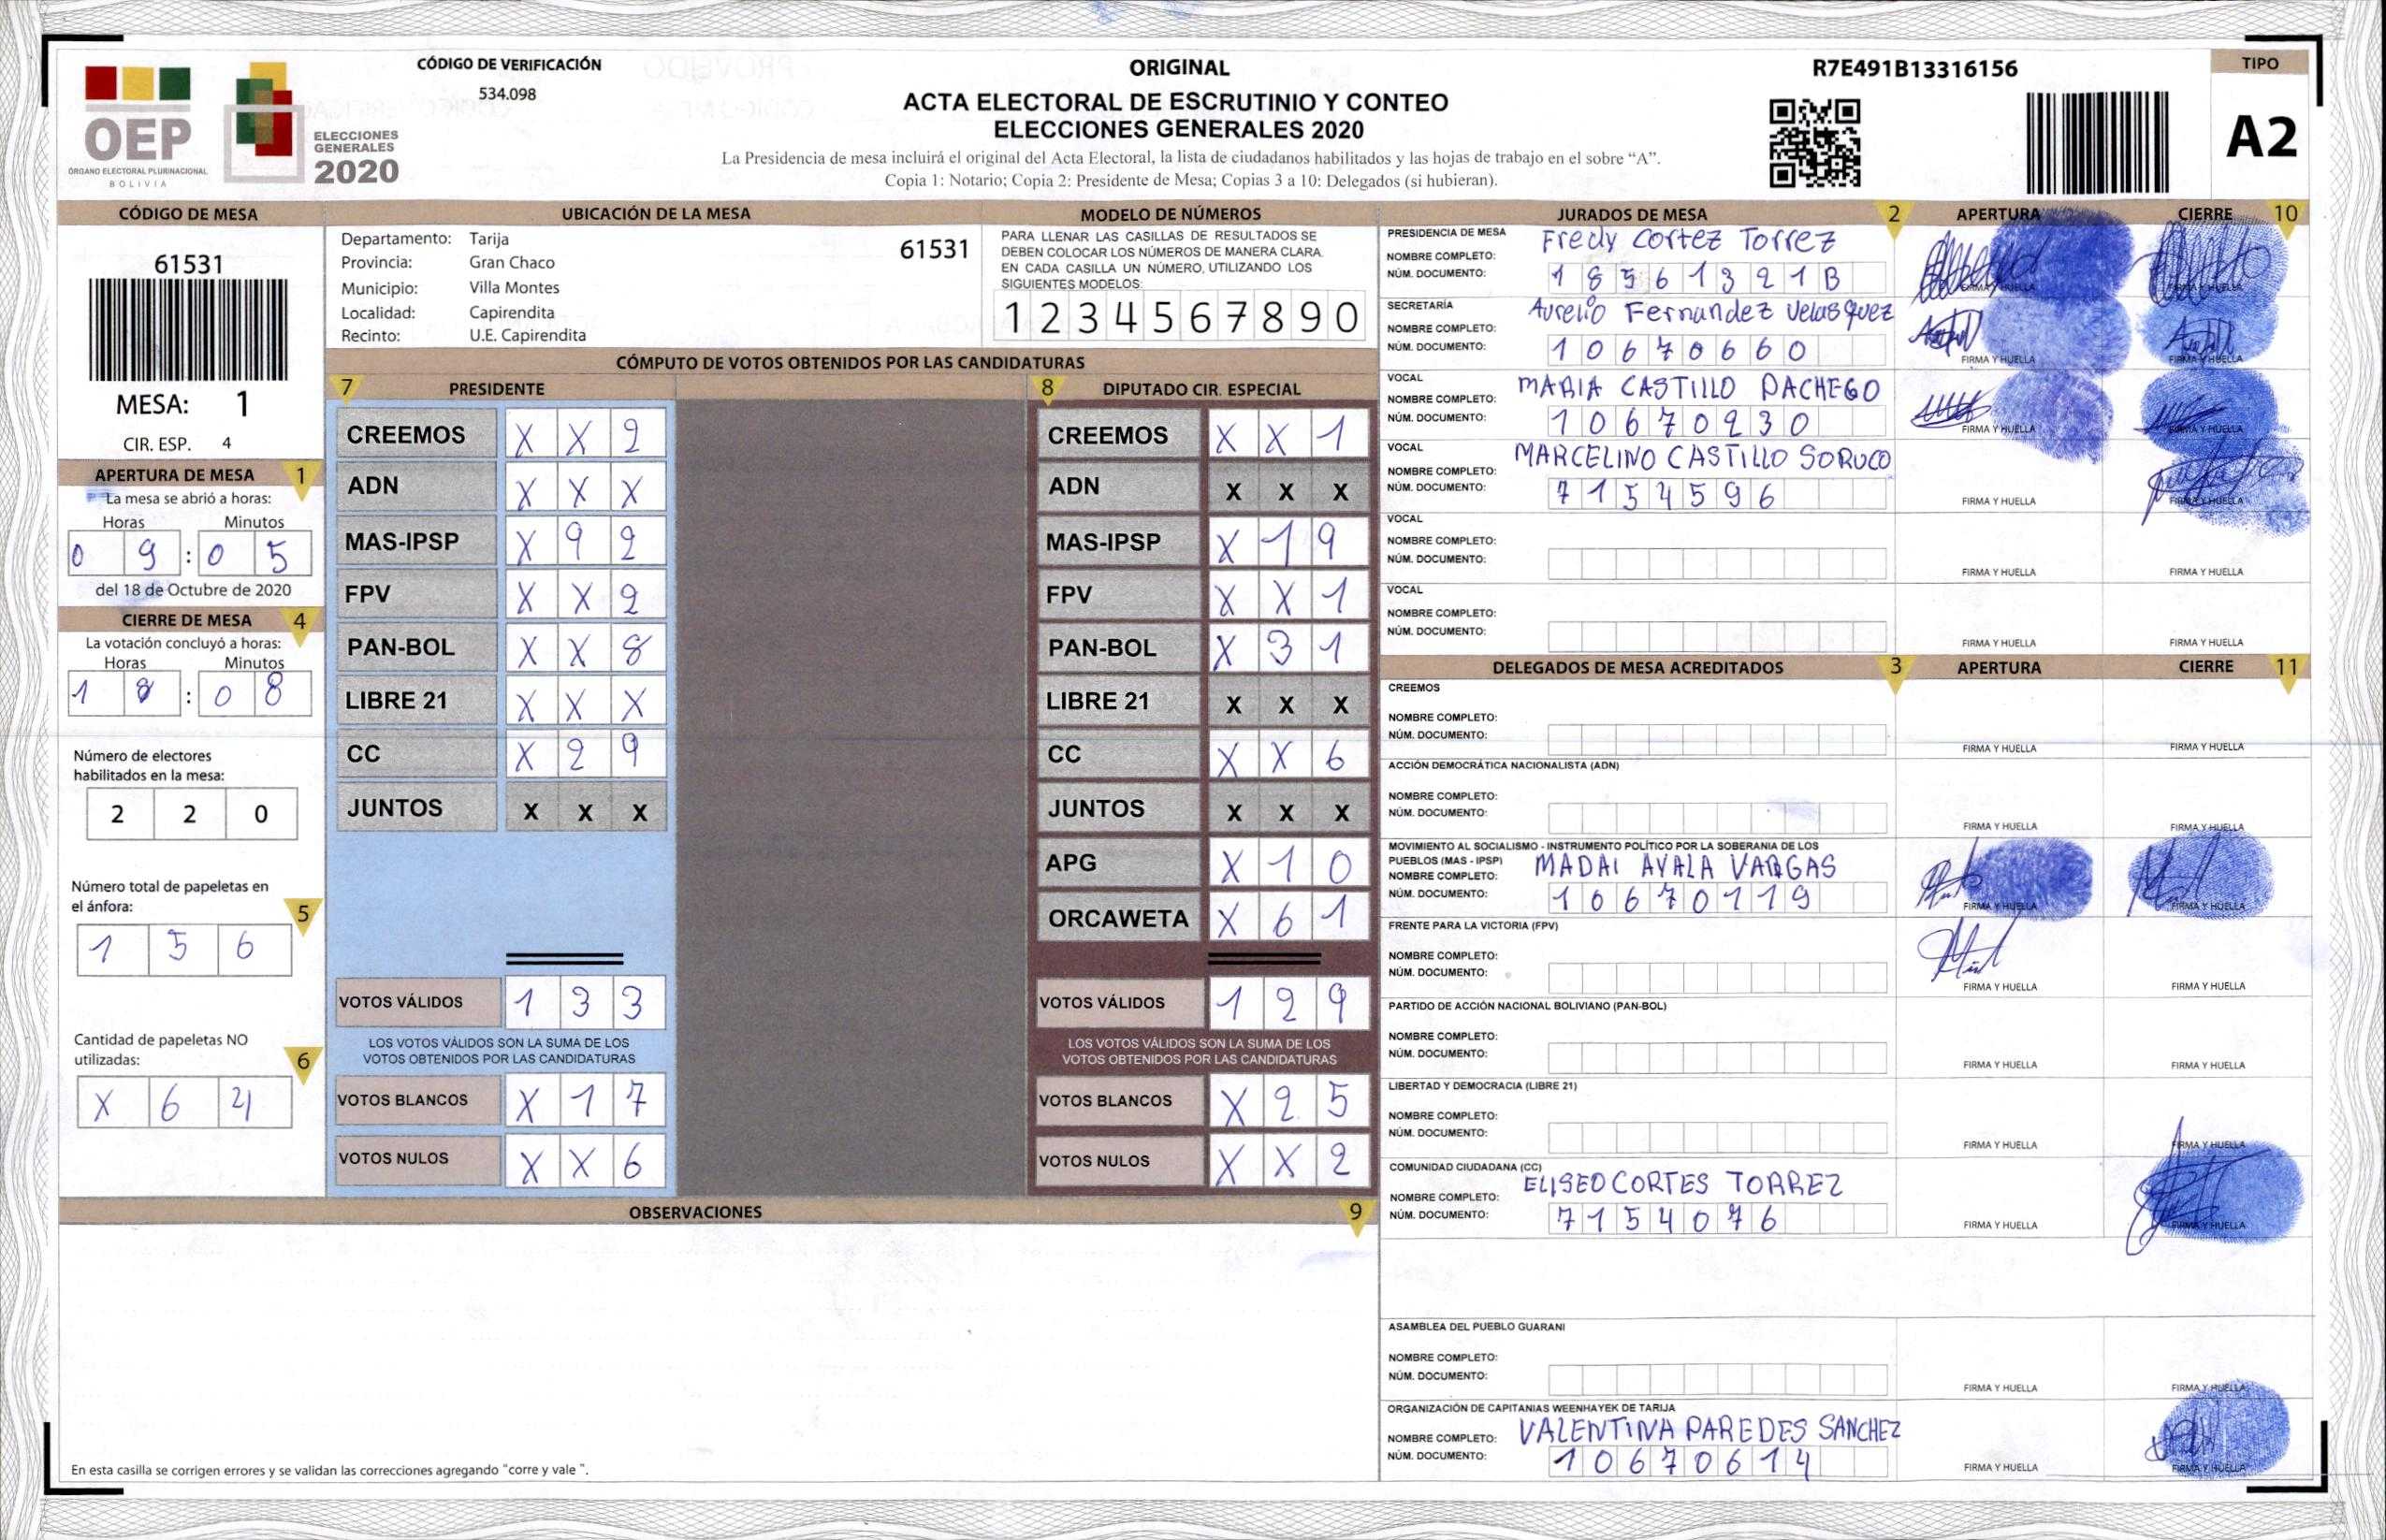 OEP
ÓRGANO ELECTORAL PLURINACIONAL
BOLIVIA
ELECCIONES
GENERALES
2020
CÓDIGO DE VERIFICACIÓN
534.098
ORIGINAL
ACTA ELECTORAL DE ESCRUTINIO Y CONTEO
ELECCIONES GENERALES 2020
La Presidencia de mesa incluirá el original del Acta Electoral, la lista de ciudadanos habilitados y las hojas de trabajo en el sobre “A”.
Copia 1: Notario; Copia 2: Presidente de Mesa; Copias 3 a 10: Delegados (si hubieran).
R7E491B13316156
TIPO
A2
CÓDIGO DE MESA
61531
MESA: 1
CIR. ESP. 4
APERTURA DE MESA 1
La mesa se abrió a horas:
Horas Minutos
0 9 : 0 5
del 18 de Octubre de 2020
CIERRE DE MESA 4
La votación concluyó a horas:
Horas Minutos
1 8 : 0 8
Número de electores
habilitados en la mesa:
2 2 0
Número total de papeletas en
el ánfora: 5
1 5 6
Cantidad de papeletas NO
utilizadas: 6
X 6 4
UBICACIÓN DE LA MESA
Departamento: Tarija 61531
Provincia: Gran Chaco
Municipio: Villa Montes
Localidad: Capirendita
Recinto: U.E. Capirendita
MODELO DE NÚMEROS
PARA LLENAR LAS CASILLAS DE RESULTADOS SE
DEBEN COLOCAR LOS NÚMEROS DE MANERA CLARA.
EN CADA CASILLA UN NÚMERO, UTILIZANDO LOS
SIGUIENTES MODELOS:
1 2 3 4 5 6 7 8 9 0
CÓMPUTO DE VOTOS OBTENIDOS POR LAS CANDIDATURAS
7 PRESIDENTE
CREEMOS X X 2
ADN X X X
MAS-IPSP X 9 2
FPV X X 2
PAN-BOL X X 8
LIBRE 21 X X X
CC X 2 9
JUNTOS X X X
VOTOS VÁLIDOS 1 3 3
LOS VOTOS VÁLIDOS SON LA SUMA DE LOS
VOTOS OBTENIDOS POR LAS CANDIDATURAS
VOTOS BLANCOS X 1 7
VOTOS NULOS X X 6
8 DIPUTADO CIR. ESPECIAL
CREEMOS X X 1
ADN X X X
MAS-IPSP X 1 9
FPV X X 1
PAN-BOL X 3 1
LIBRE 21 X X X
CC X X 6
JUNTOS X X X
APG X 1 0
ORCAWETA X 6 1
VOTOS VÁLIDOS 1 2 9
LOS VOTOS VÁLIDOS SON LA SUMA DE LOS
VOTOS OBTENIDOS POR LAS CANDIDATURAS
VOTOS BLANCOS X 2 5
VOTOS NULOS X X 2
OBSERVACIONES 9
En esta casilla se corrigen errores y se validan las correcciones agregando "corre y vale ".
JURADOS DE MESA 2 APERTURA CIERRE 10
PRESIDENCIA DE MESA
NOMBRE COMPLETO: Fredy Cortez Torrez
NÚM. DOCUMENTO: 1 8 5 6 1 3 2 1 B
FIRMA Y HUELLA FIRMA Y HUELLA
SECRETARÍA
NOMBRE COMPLETO: Aurelio Fernandez Velasquez
NÚM. DOCUMENTO: 1 0 6 7 0 6 6 0
FIRMA Y HUELLA FIRMA Y HUELLA
VOCAL
NOMBRE COMPLETO: MARIA CASTILLO PACHEGO
NÚM. DOCUMENTO: 1 0 6 7 0 2 3 0
FIRMA Y HUELLA FIRMA Y HUELLA
VOCAL
NOMBRE COMPLETO: MARCELINO CASTILLO SORUCO
NÚM. DOCUMENTO: 7 1 5 4 5 9 6
FIRMA Y HUELLA FIRMA Y HUELLA
VOCAL
NOMBRE COMPLETO:
NÚM. DOCUMENTO:
FIRMA Y HUELLA FIRMA Y HUELLA
VOCAL
NOMBRE COMPLETO:
NÚM. DOCUMENTO:
FIRMA Y HUELLA FIRMA Y HUELLA
DELEGADOS DE MESA ACREDITADOS 3 APERTURA CIERRE 11
CREEMOS
NOMBRE COMPLETO:
NÚM. DOCUMENTO:
FIRMA Y HUELLA FIRMA Y HUELLA
ACCIÓN DEMOCRÁTICA NACIONALISTA (ADN)
NOMBRE COMPLETO:
NÚM. DOCUMENTO:
FIRMA Y HUELLA FIRMA Y HUELLA
MOVIMIENTO AL SOCIALISMO - INSTRUMENTO POLÍTICO POR LA SOBERANIA DE LOS
PUEBLOS (MAS - IPSP)
NOMBRE COMPLETO: MADAI AYALA VARGAS
NÚM. DOCUMENTO: 1 0 6 7 0 1 1 9
FIRMA Y HUELLA FIRMA Y HUELLA
FRENTE PARA LA VICTORIA (FPV)
NOMBRE COMPLETO:
NÚM. DOCUMENTO:
FIRMA Y HUELLA FIRMA Y HUELLA
PARTIDO DE ACCIÓN NACIONAL BOLIVIANO (PAN-BOL)
NOMBRE COMPLETO:
NÚM. DOCUMENTO:
FIRMA Y HUELLA FIRMA Y HUELLA
LIBERTAD Y DEMOCRACIA (LIBRE 21)
NOMBRE COMPLETO:
NÚM. DOCUMENTO:
FIRMA Y HUELLA FIRMA Y HUELLA
COMUNIDAD CIUDADANA (CC)
NOMBRE COMPLETO: ELISEO CORTES TORREZ
NÚM. DOCUMENTO: 7 1 5 4 0 7 6
FIRMA Y HUELLA FIRMA Y HUELLA
ASAMBLEA DEL PUEBLO GUARANI
NOMBRE COMPLETO:
NÚM. DOCUMENTO:
FIRMA Y HUELLA FIRMA Y HUELLA
ORGANIZACIÓN DE CAPITANIAS WEENHAYEK DE TARIJA
NOMBRE COMPLETO: VALENTINA PAREDES SANCHEZ
NÚM. DOCUMENTO: 1 0 6 7 0 6 1 4
FIRMA Y HUELLA FIRMA Y HUELLA